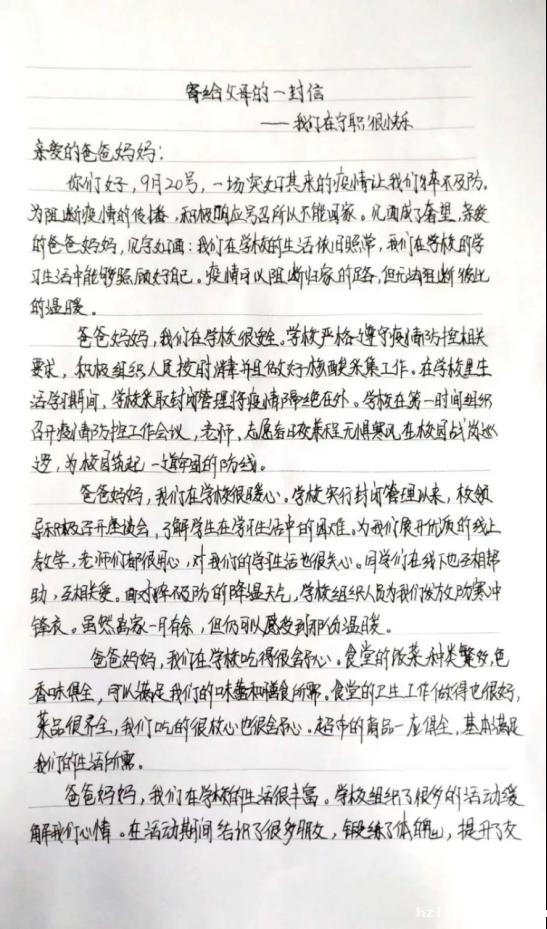 寄给父母的一封信
——我们在宁职很快乐
亲爱的爸爸妈妈：
你们好，9月20号，一场突如其来的疫情让我们猝不及防。
为阻断疫情的传播，积极响应号召所以不能回家。见面成了奢望，亲爱
的爸爸妈妈，见字如面：我们在学校的生活依旧照常，我们在学校的学
习生活中能够照顾好自己。疫情可以阻断归家的路，但无法阻断彼此
的温暖。
爸爸妈妈，我们在学校很安全。学校严格遵守疫情防控相关
要求，积极组织人员按时消毒并且做好核酸采集工作。在学校里生
活学习期间，学校采取封闭管理将疫情隔绝在外。学校在第一时间组织
召开疫情防控工作会议，老师，志愿者日夜兼程无惧寒风在校园站岗巡
逻，为校园筑起一道牢固的防线。
爸爸妈妈，我们在学校很暖心。学校实行封闭管理以来，校领
导积极召开座谈会，了解学生在学习生活中的困难。为我们展开优质的线上
教学，老师们都很用心，对我们的学习生活也很关心。同学们在线下也互相帮
助，互相关爱。面对猝不及防的降温天气，学校组织人员为我们发放防寒冲
锋衣。虽然离家一月有余，但仍可以感受到那份温暖。
爸爸妈妈，我们在学校吃得很舒心。食堂的饭菜种类繁多，色
香味俱全，可以满足我们的味蕾和膳食所需。食堂的卫生工作做得也很好，
菜品很齐全，我们吃的很放心也很舒心。超市的商品一应俱全，基本满足
我们的生活所需。
爸爸妈妈，我们在学校的生活很丰富。学校组织了很多的活动缓
解我们心情。在活动期间结识了很多朋友，锻练了体魄，提升了交